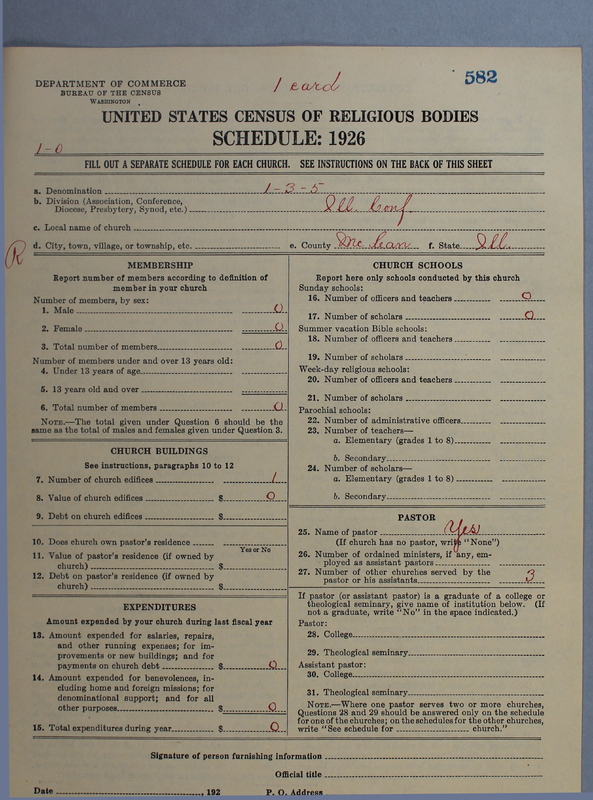 582
1 card
DEPARTMENT OF COMMERCE
BUREAU OF THE CENSUS
WASHINGTON
UNITED STATES CENSUS OF RELIGIOUS BODIES
SCHEDULE: 1926
1-0
FILL OUT A SEPARATE SCHEDULE FOR EACH CHURCH. SEE INSTRUCTIONS ON THE BACK OF THIS SHEET
a. Denomination 1-3-5
b. Division (Association, Conference,
Diocese, Presbytery, Synod, etc.) Ill. Conf.
c. Local name of church
d. City, town, village, or township, etc. e. County McLean f. State Ill.
R
MEMBERSHIP
Report number of members according to definition of
member in your church
Number of members, by sex:
1. Male 0
2. Female 0
3. Total number of members 0
Number of members under and over 13 years old:
4. Under 13 years of age
5. 13 years old and over
6. Total number of members 0
NOTE.—The total given under Question 6 should be the
same as the total of males and females given under Question 3.
CHURCH BUILDINGS
See instructions, paragraphs 10 to 12
7. Number of church edifices 1
8. Value of church edifices $ 0
9. Debt on church edifices $
10. Does church own pastor's residence
Yes or No
11. Value of pastor's residence (if owned by
church) $
12. Debt on pastor's residence (if owned by
church) $
EXPENDITURES
Amount expended by your church during last fiscal year
13. Amount expended for salaries, repairs,
and other running expenses; for im-
provements or new buildings; and for
payments on church debt $ 0
14. Amount expended for benevolences, in-
cluding home and foreign missions; for
denominational support; and for all
other purposes $ 0
15. Total expenditures during year $ 0
CHURCH SCHOOLS
Report here only schools conducted by this church
Sunday schools:
16. Number of officers and teachers 0
17. Number of scholars 0
Summer vacation Bible schools:
18. Number of officers and teachers
19. Number of scholars
Week-day religious schools:
20. Number of officers and teachers
21. Number of scholars
Parochial schools:
22. Number of administrative officers
23. Number of teachers—
a. Elementary (grades 1 to 8)
b. Secondary
24. Number of scholars—
a. Elementary (grades 1 to 8)
b. Secondary
PASTOR
25. Name of pastor Yes
(If church has no pastor, write "None")
26. Number of ordained ministers, if any, em-
ployed as assistant pastors
27. Number of other churches served by the
pastor or his assistants 3
If pastor (or assistant pastor) is a graduate of a college or
theological seminary, give name of institution below. (If
not a graduate, write "No" in the space indicated.)
Pastor:
28. College
29. Theological seminary
Assistant pastor:
30. College
31. Theological seminary
NOTE.—Where one pastor serves two or more churches,
Questions 28 and 29 should be answered only on the schedule
for one of the churches; on the schedules for the other churches,
write "See schedule for church."
Signature of person furnishing information
Official title
Date , 192 P. O. Address